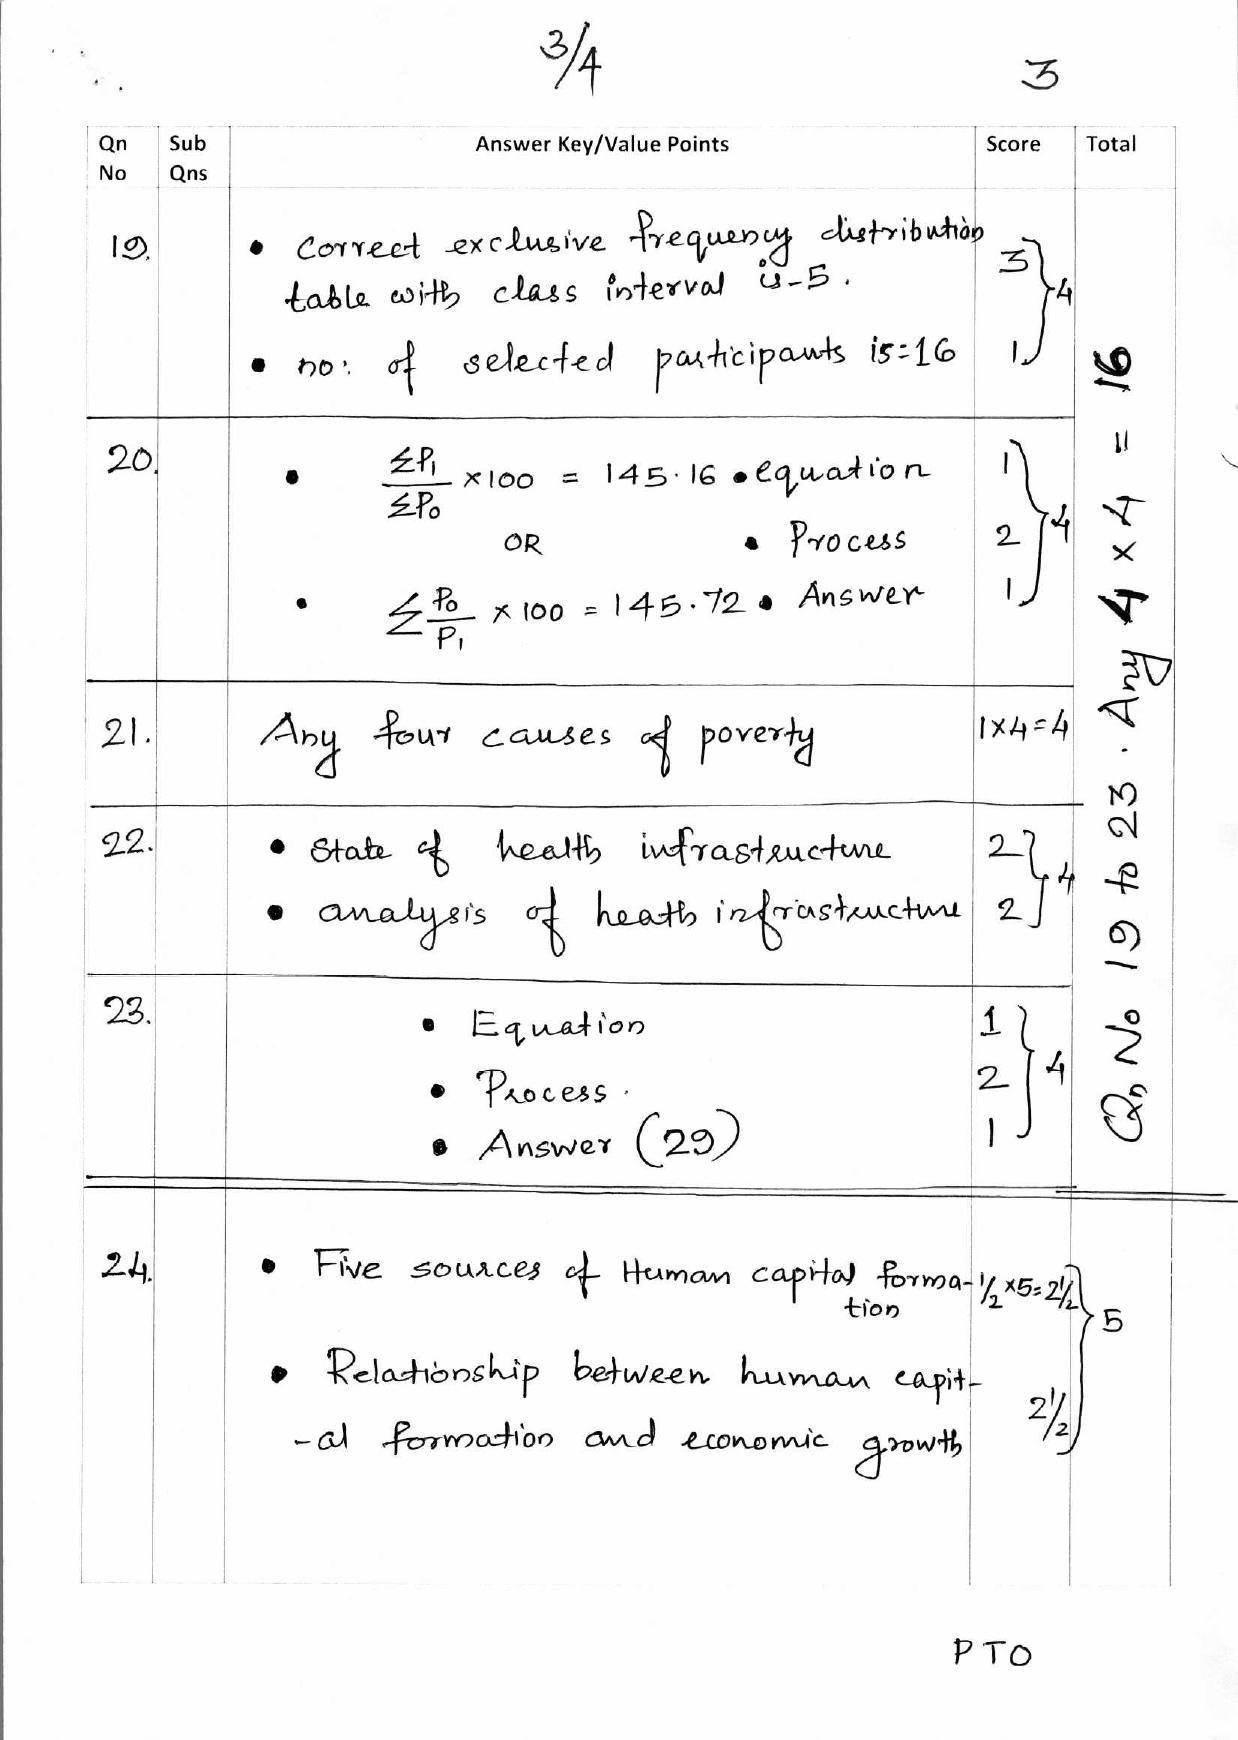 3/4
3
Qn No
Sub Qns
Answer Key/Value Points
Score
Total
19.
• Correct exclusive frequency distribution
table with class interval is - 5.
3
• no: of selected participants is = 16
1
} 4
20.
• ΣP1/ΣP0 × 100 = 145.16 • equation
1
OR • Process
2
• Σ P0/P1 × 100 = 145.72 • Answer
1
} 4
21.
Any four causes of poverty
1×4=4
22.
• State of health infrastructure
2
• analysis of heath infrastructure
2
} 4
23.
• Equation
1
• Process.
2
• Answer (29)
1
} 4
Qn No 19 to 23. Any 4 × 4 = 16
24.
• Five sources of Human capital forma-
tion
½ ×5= 2½
• Relationship between human capit-
-al formation and economic growth
2½
} 5
PTO